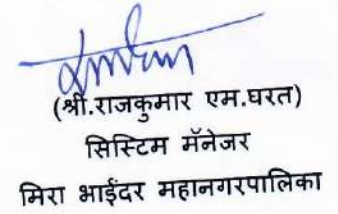 (श्री.राजकुमार एम.घरत)
सिस्टिम मॅनेजर
मिरा भाईंदर महानगरपालिका